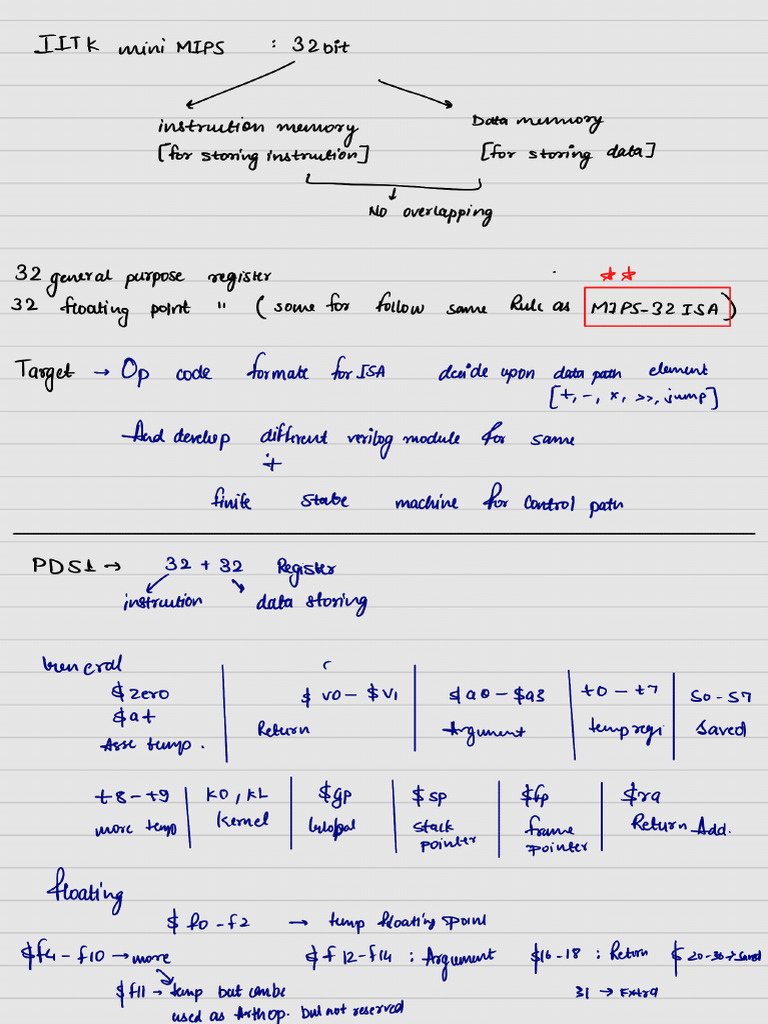 IITK mini MIPS : 32 bit
instruction memory Data memory
[for storing instruction] [for storing data]
No overlapping
32 general purpose register
32 floating point " (some for follow same Rule as MIPS-32 ISA)
Target → Op code formate for ISA decide upon data path element
[+, -, *, >>, jump]
And develop different verilog module for same
+
finite state machine for control path
PDS1 → 32 + 32 Register
instruction data storing
General
$zero $v0 - $v1 $a0 - $a3 t0 - t7 S0 - S7
$at Return Argument temp regi saved
Asse temp.
t8 - t9 K0, K1 $gp $sp $fp $ra
more temp Kernel Global stack pointer frame pointer Return Add.
floating
$f0 - f2 → temp floating point
$f4 - f10 → more $f12 - f14 : Argument $16 - 18 : Return $20-30 → saved
$f11 → temp but can be 31 → Extra
used as Arth op. but not reserved